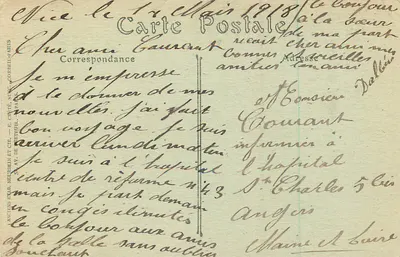 Nice le 1r Mars 1918
Carte Postale
Correspondance
Adresse
Cher ami Courant
je m'empresse
à te donner de mes
nouvelles, j'ai fait
bon voyage je suis
arriver lendemain
Je suis à l'hopital
centre de réforme n° 43
mais je part demain
en congés ilimités
le bonjour aux amis
de la salle sans oublier
le bonjour
à la sœur
de ma part
cher ami mes
amitiés ton ami
Monsieur
Courant
infirmier à
l'hopital
St Charles 5 bis
Angers
Maine et Loire